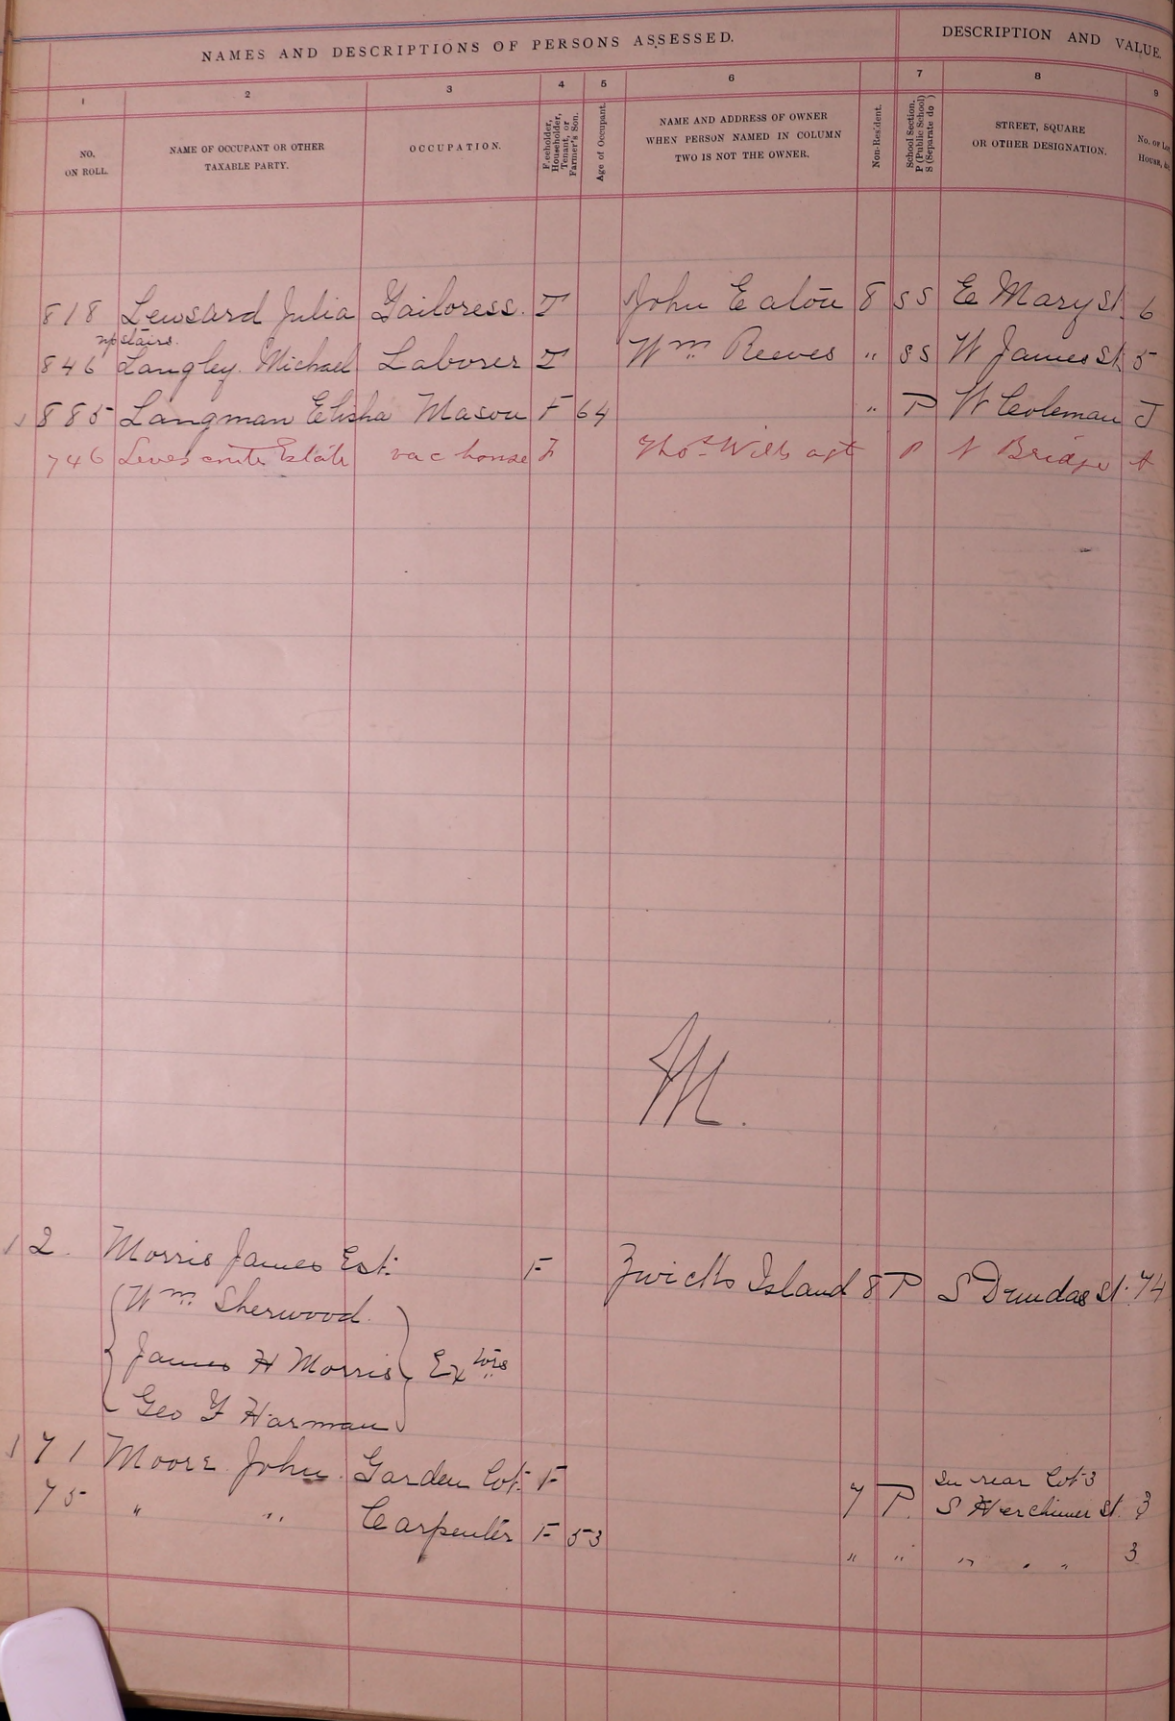 NAMES AND DESCRIPTIONS OF PERSONS ASSESSED.
DESCRIPTION AND VALUE.
1 2 3 4 5 6 7 8 9
NO. ON ROLL.
NAME OF OCCUPANT OR OTHER TAXABLE PARTY.
OCCUPATION.
Freeholder, Householder, Tenant, or Farmer's Son.
Age of Occupant.
NAME AND ADDRESS OF OWNER WHEN PERSON NAMED IN COLUMN TWO IS NOT THE OWNER.
Non-Resident.
School Section. P (Public School) S (Separate do )
STREET, SQUARE OR OTHER DESIGNATION.
No. of Lot House, &c
818 Lewsard Julia Tailoress. T John Eaton 8 SS E Mary St. 6
upstairs.
846 Langley Michael Laborer T Wm Reeves " SS W James St 5
885 Langman Elisha Mason F 64 " P W Coleman J
746 Estate vac house F Thos Wills agt P N Bridge
M.
2 Morris James Est. F Zwicks Island 8 P S Dundas St. 74
Wm Sherwood
James H Morris Extors
Geo F Harman
71 Moore John Garden Lot F
In rear Lot 3
7 P. S Herchimer St. 3
75 " " Carpenter F 53
" " " " " 3